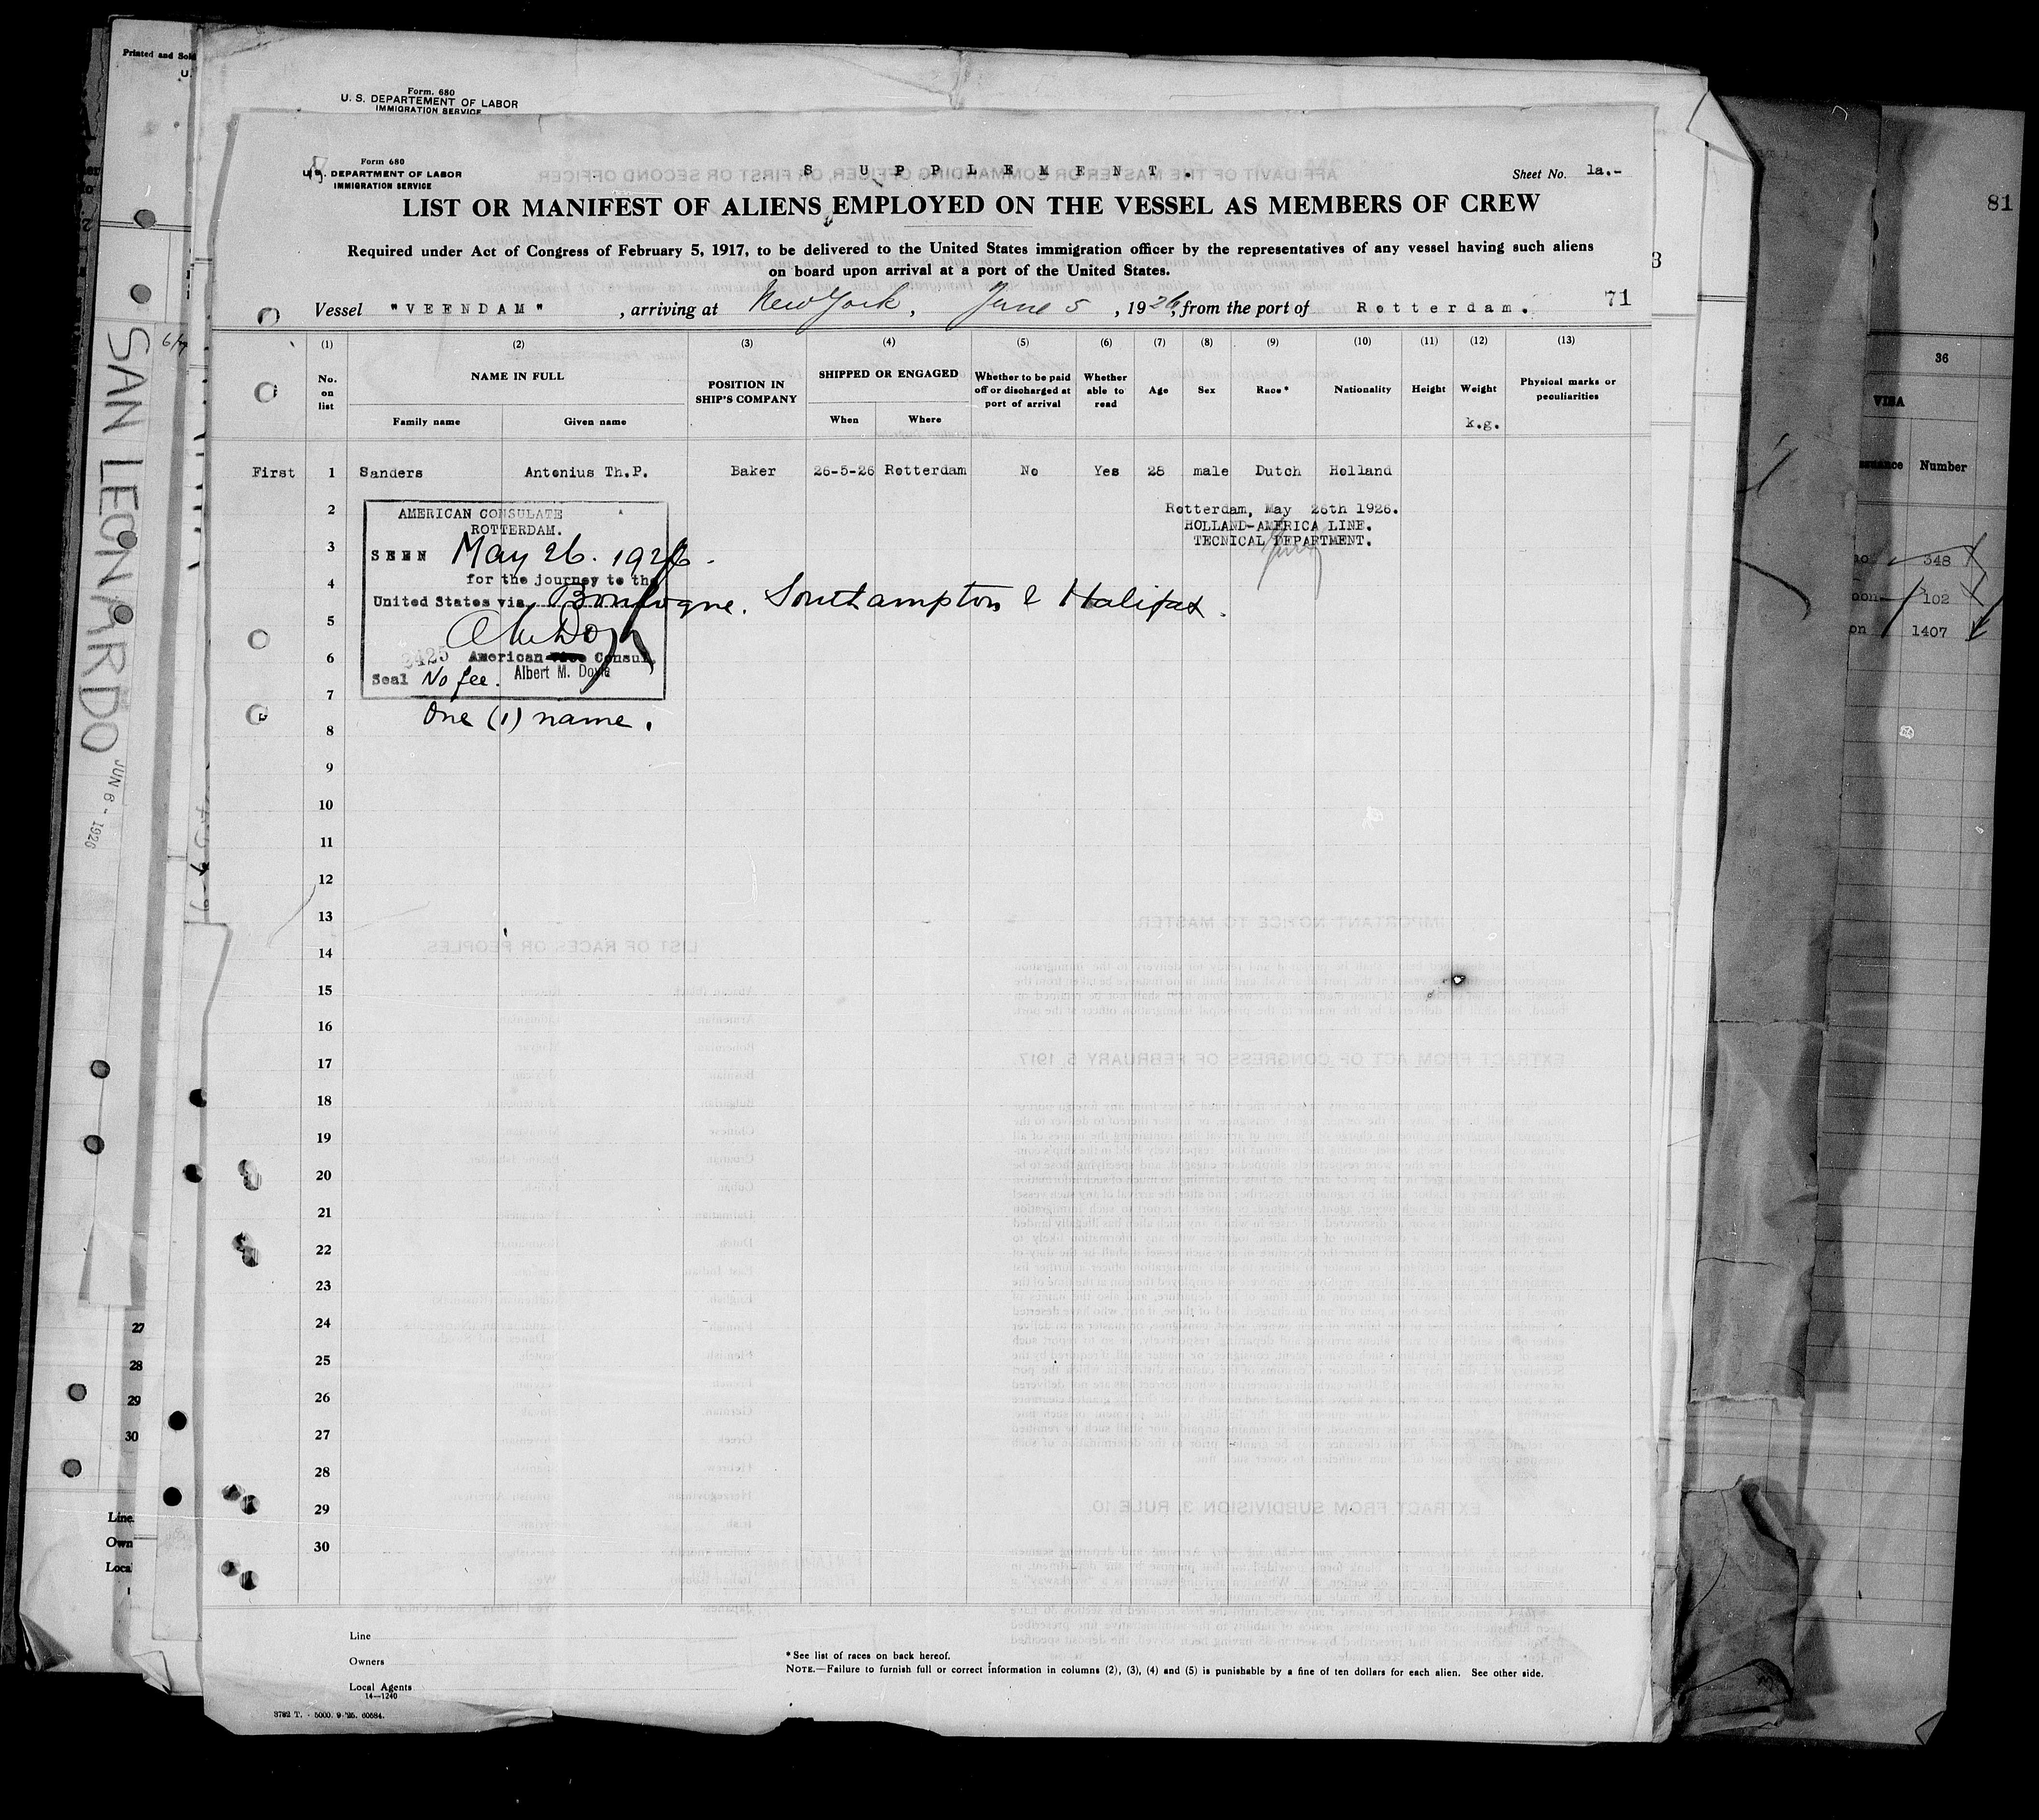 Printed and Sold
U.
Form. 680
U. S. DEPARTEMENT OF LABOR
IMMIGRATION SERVICE
Form 680
U.S. DEPARTMENT OF LABOR
IMMIGRATION SERVICE
SUPPLEMENT.
Sheet No. 1a.-
LIST OR MANIFEST OF ALIENS EMPLOYED ON THE VESSEL AS MEMBERS OF CREW
Required under Act of Congress of February 5, 1917, to be delivered to the United States immigration officer by the representatives of any vessel having such aliens
on board upon arrival at a port of the United States.
Vessel "VEENDAM", arriving at New York, June 5, 1926, from the port of Rotterdam.
71
81
3
(1) (2) (3) (4) (5) (6) (7) (8) (9) (10) (11) (12) (13)
No. on list
NAME IN FULL
Family name Given name
POSITION IN SHIP'S COMPANY
SHIPPED OR ENGAGED
When Where
Whether to be paid off or discharged at port of arrival
Whether able to read
Age Sex Race* Nationality Height Weight
k.g.
Physical marks or peculiarities
First 1 Sanders Antonius Th.P. Baker 26-5-26 Rotterdam No Yes 28 male Dutch Holland
AMERICAN CONSULATE
ROTTERDAM.
SEEN May 26. 1926.
for the journey to the
United States via Boulogne. Southampton & Halifax.
2425 American Consul.
Seal No fee. Albert M. Doyle
One (1) name.
Rotterdam, May 26th 1926.
HOLLAND-AMERICA LINE.
TECNICAL DEPARTMENT.
2
3
4
5
6
7
8
9
10
11
12
13
14
15
16
17
18
19
20
21
22
23
24
25
26
27
28
29
30
Line
Owners
Local Agents
14—1240
*See list of races on back hereof.
NOTE.—Failure to furnish full or correct information in columns (2), (3), (4) and (5) is punishable by a fine of ten dollars for each alien. See other side.
3782 T. - 5000. 9-'25. 60584.
SAN LEONARDO
JUN 6 - 1926
27
28
29
30
Line
Own
Local
36
VISA
Number
348
102
1407